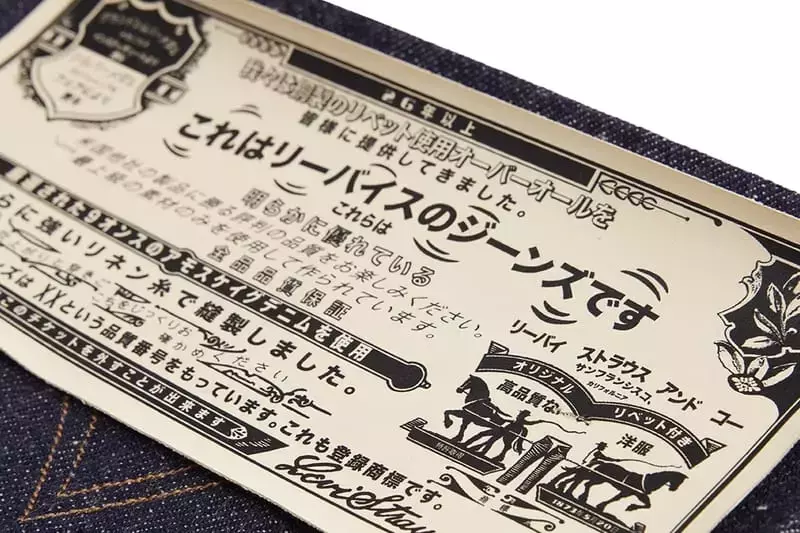 26年以上
のリベット使用オーバーオールを
皆様に提供してきました。
これはリーバイスのジーンズです
これらは
明らかに優れている
全品品質保証
の製品に勝る評判の品質をお楽しみください。
最上級の素材のみを使用して作られています。
された9オンスのアモスケイグデニムを使用
らに強いリネン糸で縫製しました。
をじっくりお
確かめください
ズは XXという品質番号をもっています。これも登録商標です。
のチケットを外すことが出来ます
リーバイ ストラウス アンド コー
サンフランシスコ、
カリフォルニア
オリジナル リベット付き
高品質な 洋服
商標
Levi Strau